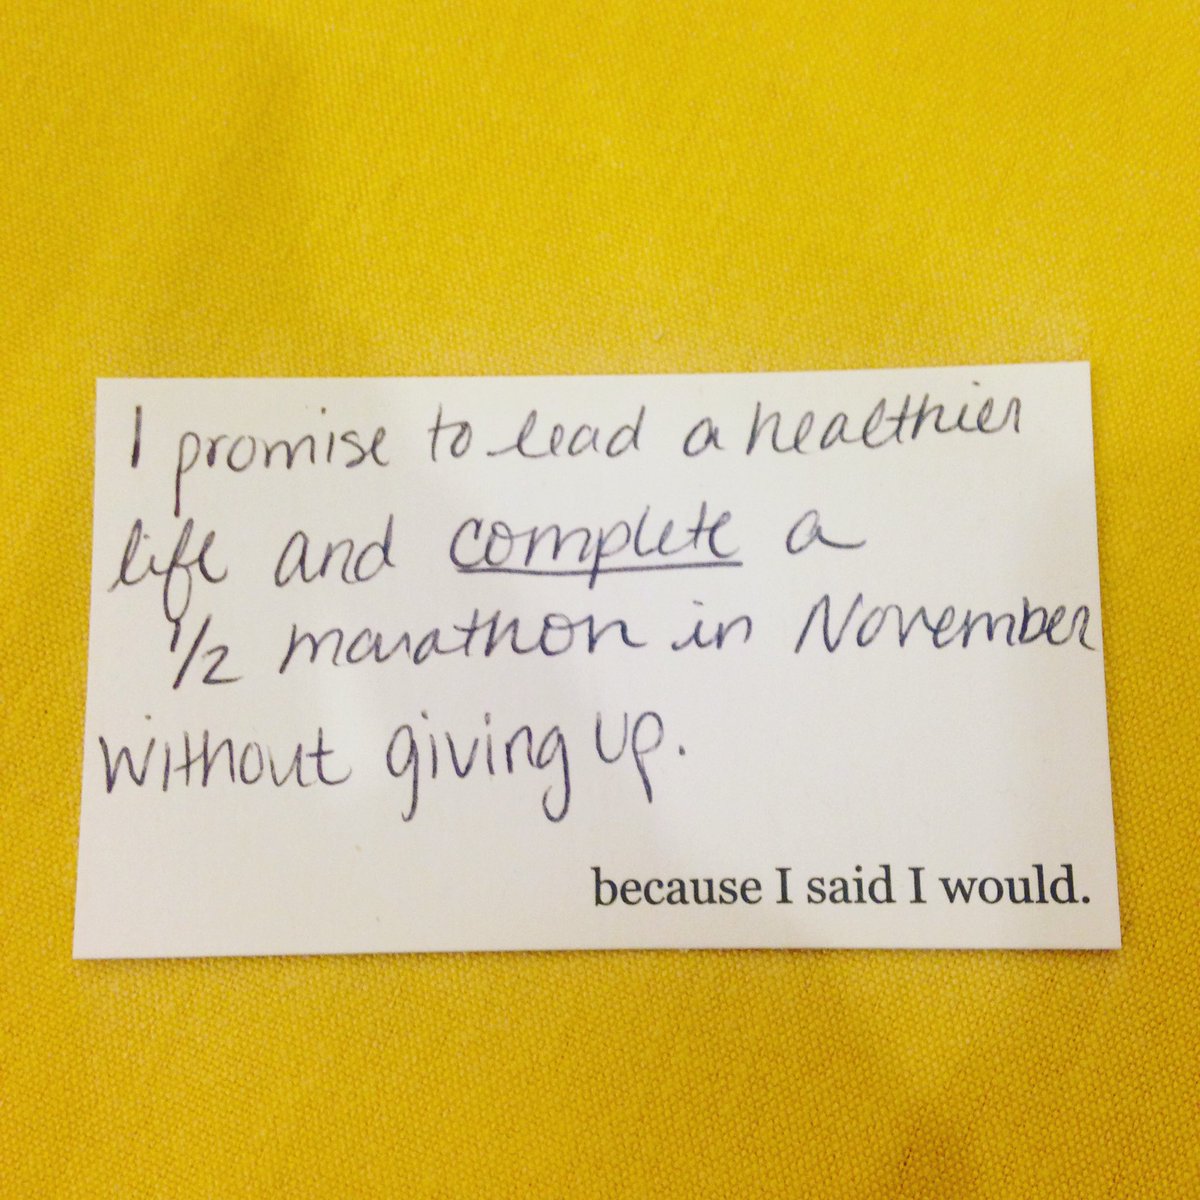 I promise to lead a healthier
life and complete a
1/2 marathon in November
without giving up.
because I said I would.